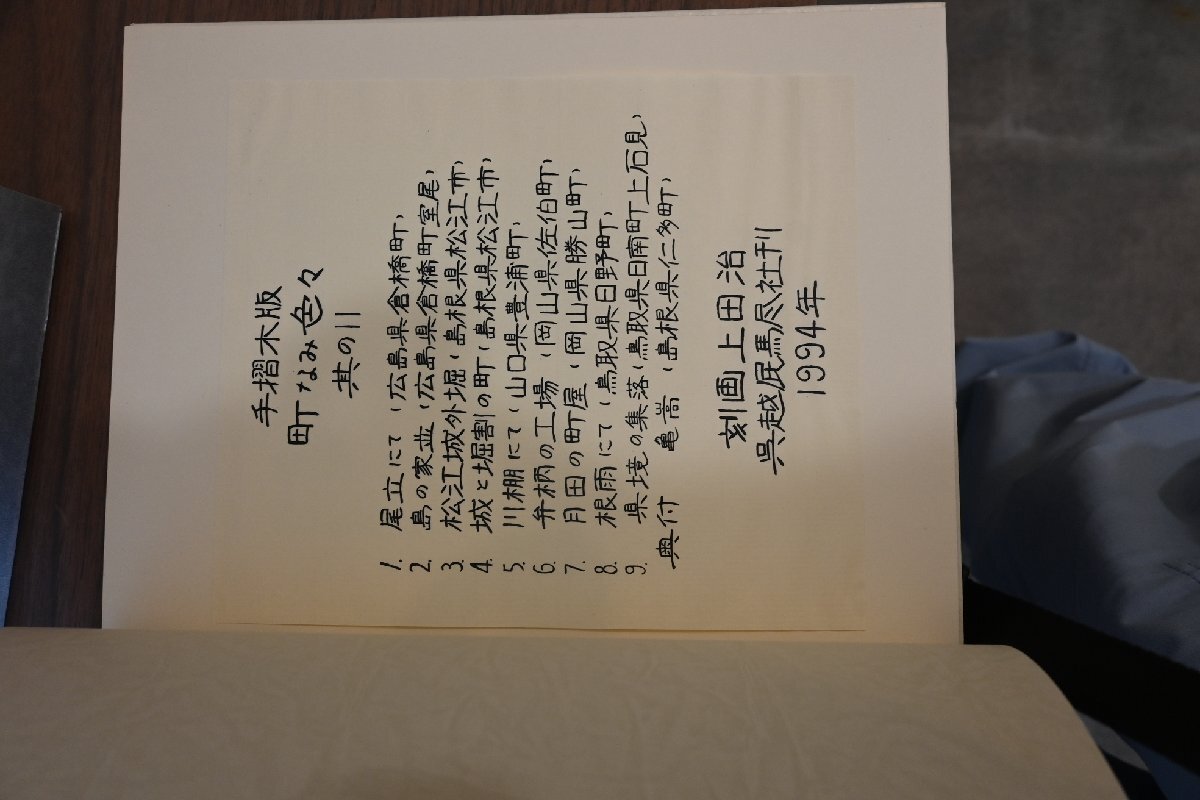 手摺木版
町なみ色々
其の川
1. 尾立にて（広島県倉橋町）
2. 島の家並（広島県倉橋町室尾）
3. 松江城外堀（島根県松江市）
4. 城と堀割の町（島根県松江市）
5. 川棚にて（山口県豊浦町）
6. 弁柄の工場（岡山県佐伯町）
7. 月田の町屋（岡山県勝山町）
8. 根雨にて（鳥取県日野町）
9. 県境の集落（鳥取県日南町上石見）
奥付 亀嵩（島根県仁多町）
刻画 上田治
呉越屁馬尽社刊
1994年